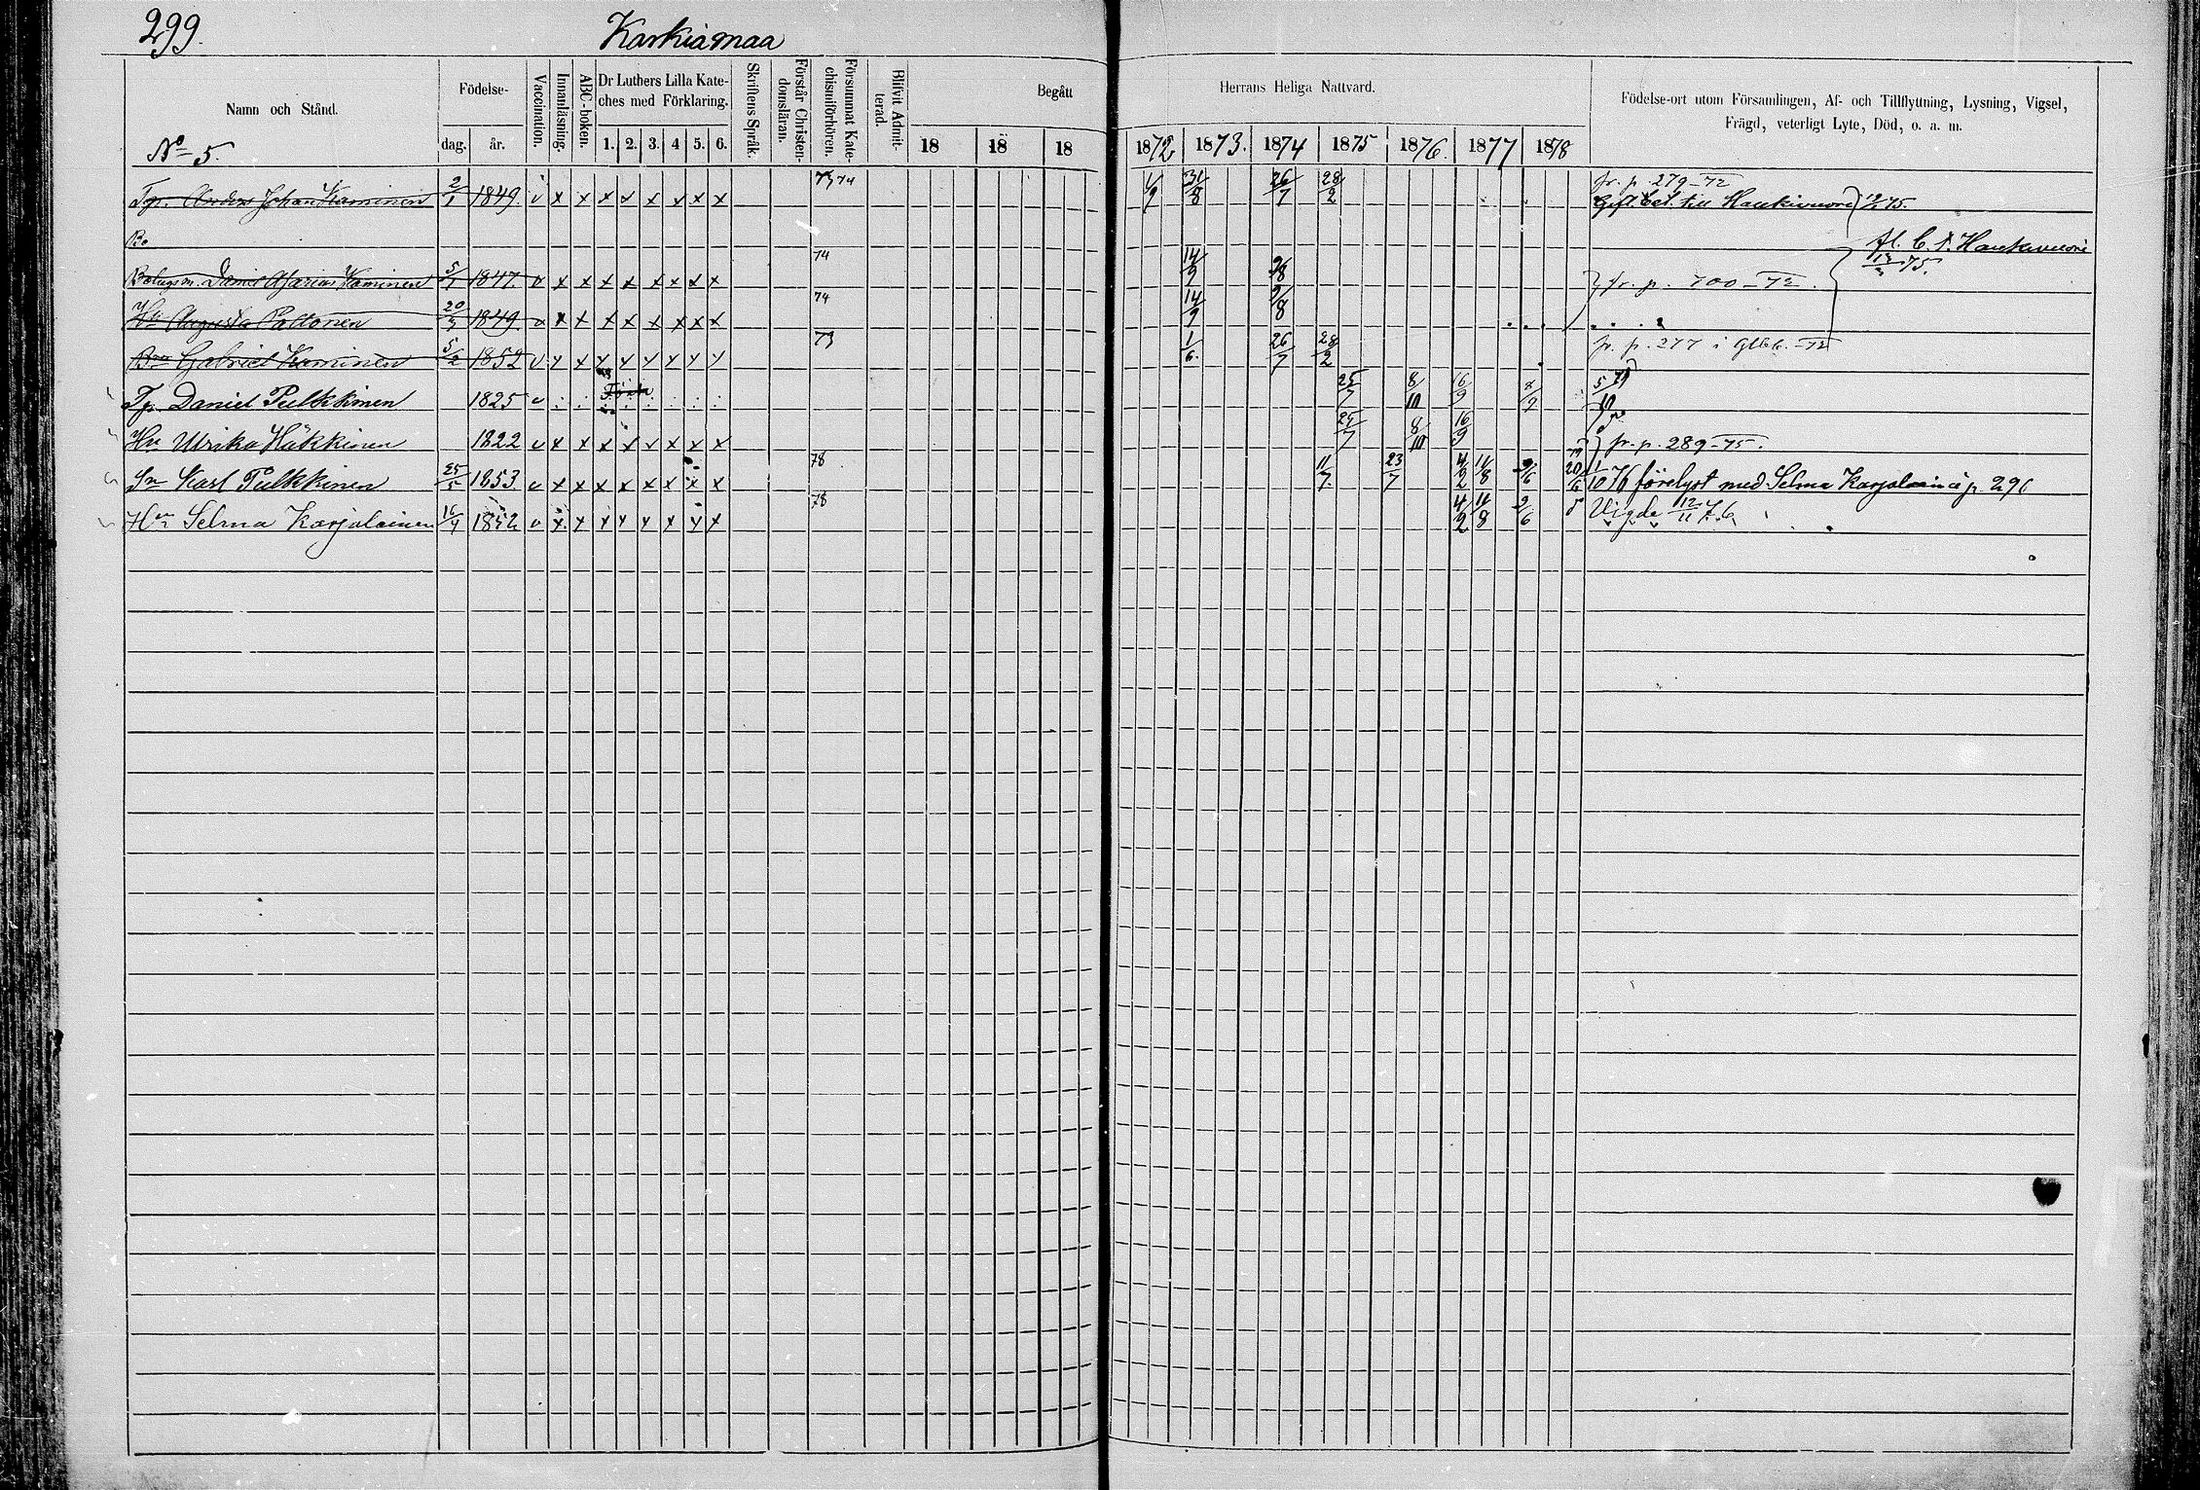 299.
Karkiamaa
Namn och Stånd.
Födelse-
dag. år.
Vaccination.
Innanläsning.
ABC-boken.
Dr Luthers Lilla Kate-
ches med Förklaring.
1. 2. 3. 4 5. 6.
Skriftens Språk.
Förstår Christen-
domsläran.
Försummat Kate-
chismiförhören.
Blifvit Admit-
terad.
Begått
18 18 18
Herrans Heliga Nattvard.
1872 1873. 1874 1875 1876. 1877 1878
Födelse-ort utom Församlingen, Af- och Tillflyttning, Lysning, Vigsel,
Frägd, veterligt Lyte, Död, o. a. m.
No 5.
fr. p. 279-72
Tp. Anders Johan Kaminen 2/1 1849. v x x x x x x x x 73 74 1/9 31/8 26/7 28/2 Gift. bet. till Haukivuori
Bo
fl. b. t. Haukivuori
75.
Bolagsm. Daniel Asarias Kaminen 5/1 1847. v x x x x x x x x 74 14/9 2/8 fr. p. 700-72.
Hu Augusta Pöllönen 20/3 1849 v x x x x x x x x 74 14/9 2/8
Bror Gabriel Kaminen 5/2 1852 v x x x x x x x x 73 1/6. 26/7 28/2 fr. p. 277 i Glkb.-72
Tp. Daniel Pulkkinen 1825 v 25/7 8/10 16/9 8/9 5/10
Hu Ulrika Häkkinen 1822 v x x x x x x x x 25/7 8/10 16/9 fr. p. 289-75.
Sn Karl Pulkkinen 25/5 1853 v x x x x x x x x 78 11/7 23/7 4/2 11/8 2/6 1/10 76 förelyst med Selma Karjalainen i p. 296
Hn Selma Karjalainen 16/4 1852 v x x x x x x x x 78 4/2 11/8 2/6 Vigde 12/11 76.